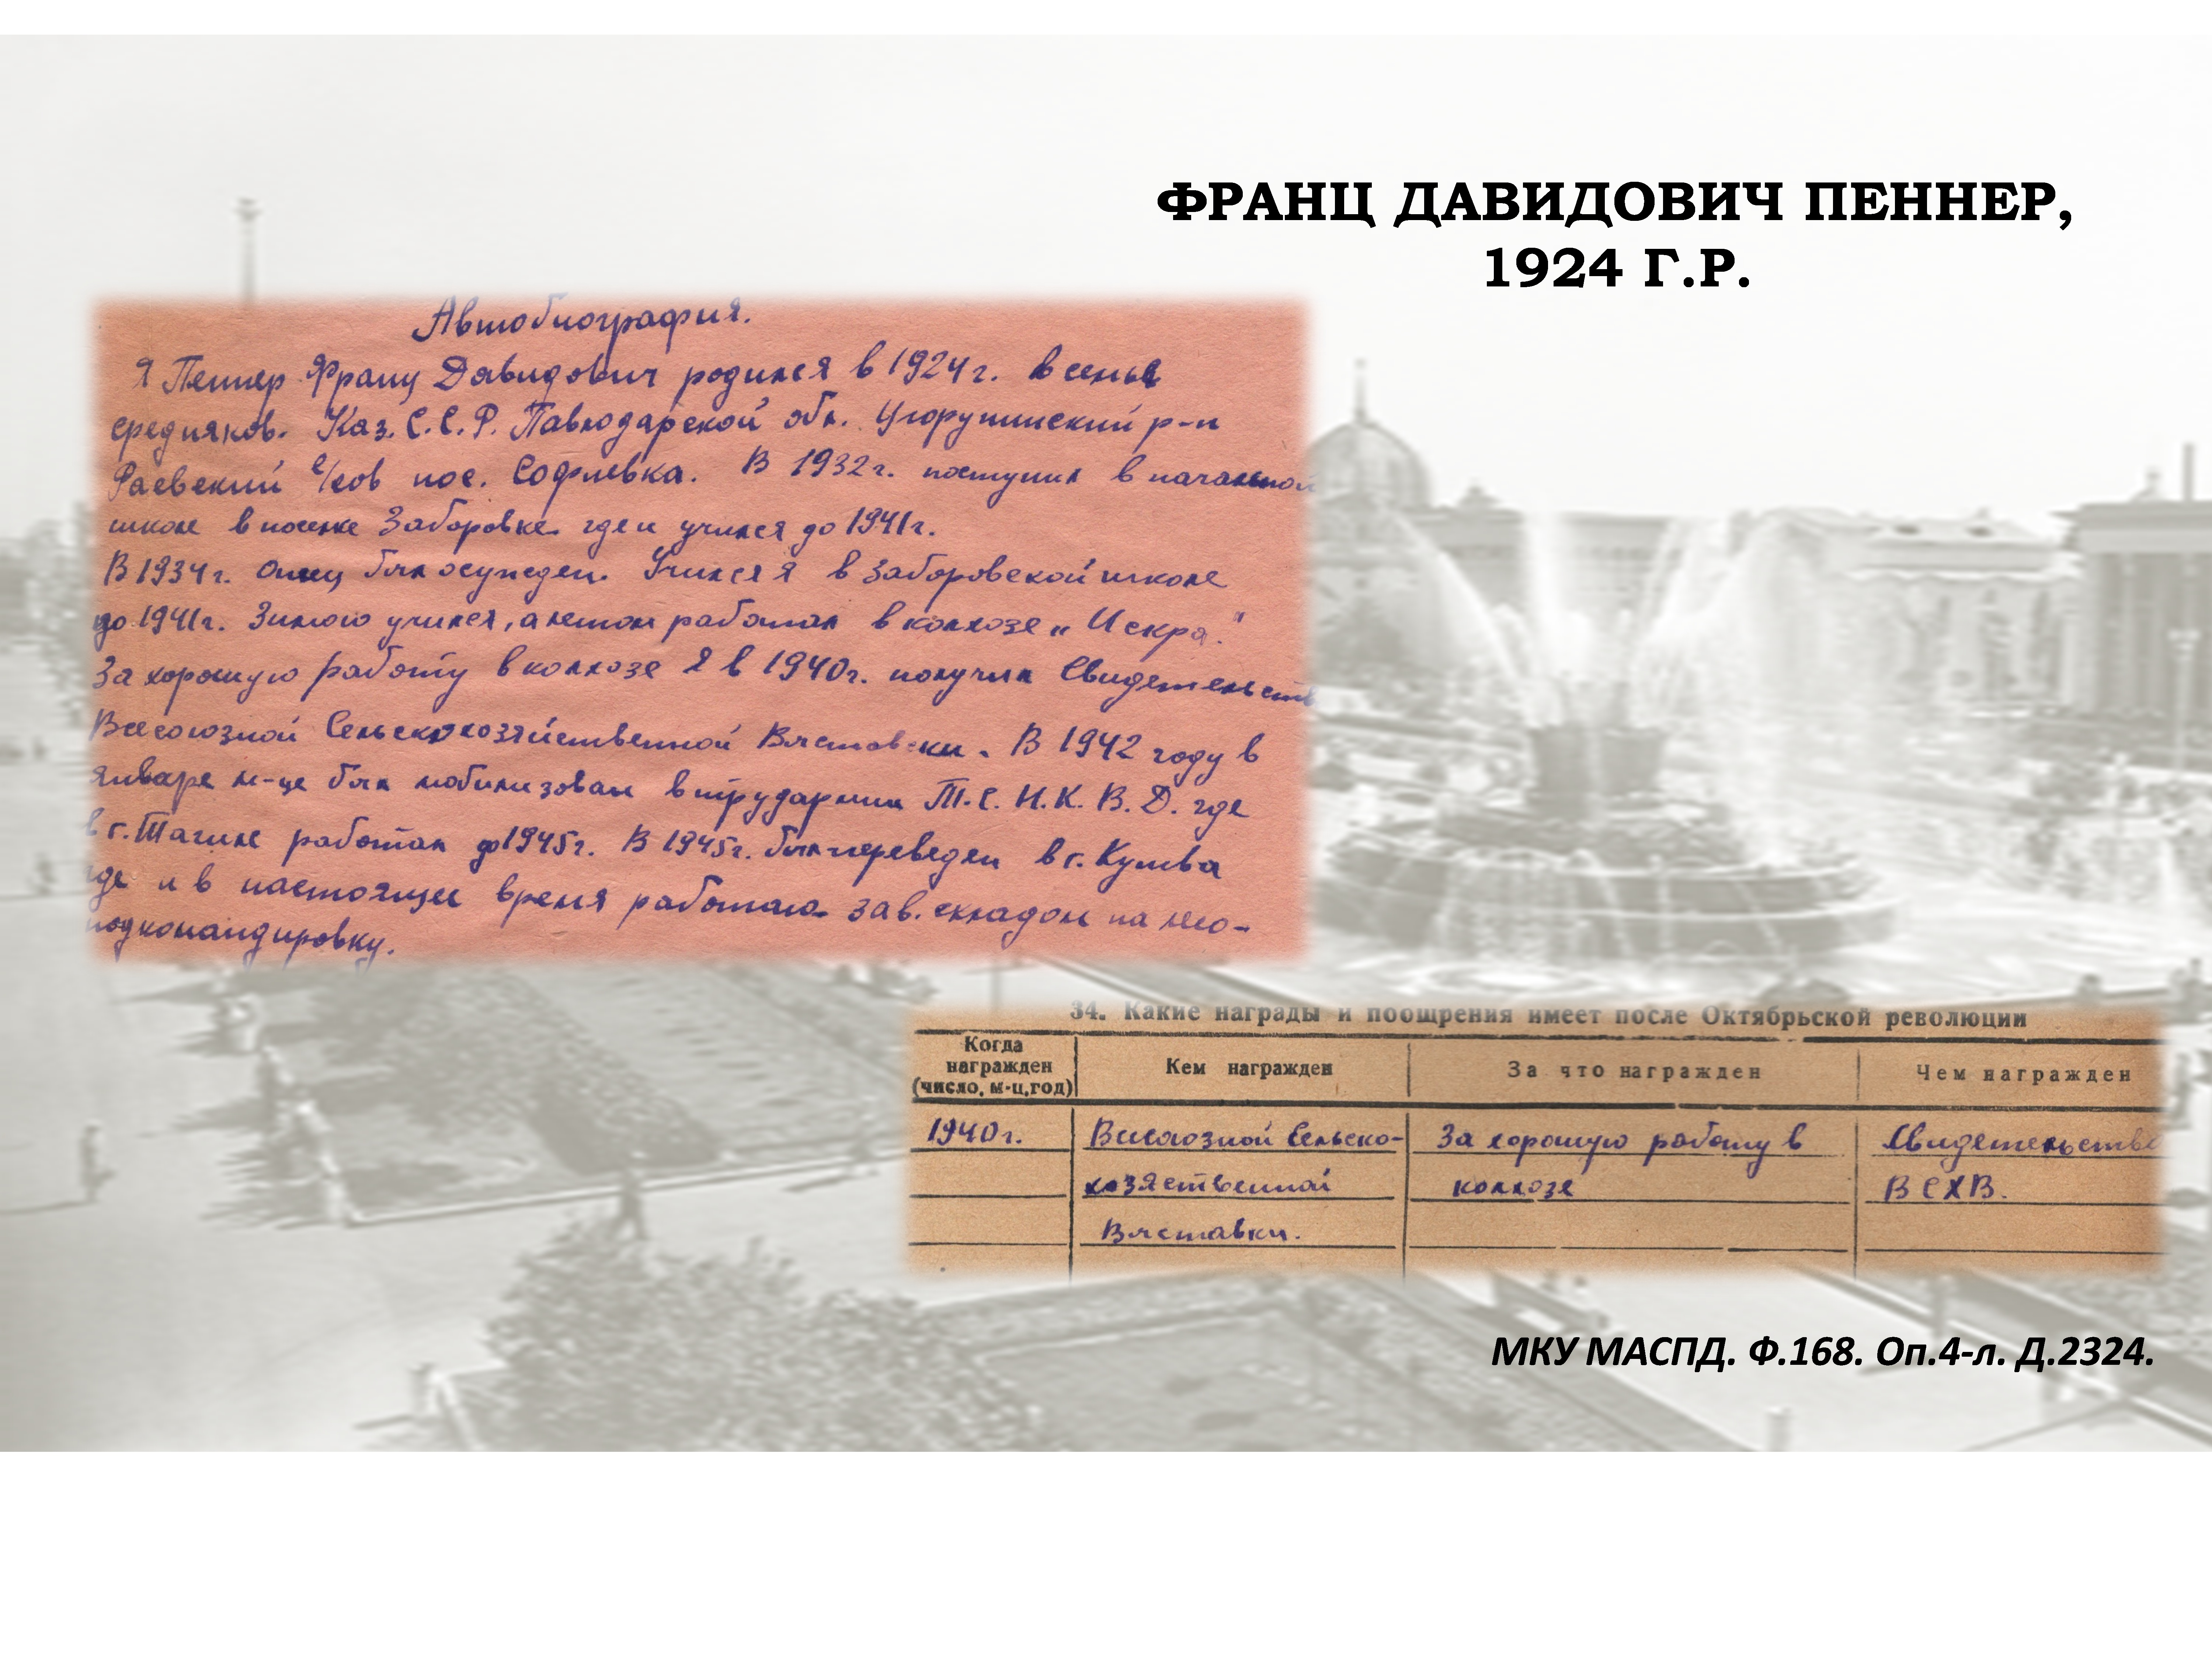 ФРАНЦ ДАВИДОВИЧ ПЕННЕР,
1924 Г.Р.
Автобиография.
Я Пеннер Франц Давидович родился в 1924 г. в семье
середняков. Каз. С.С.Р. Павлодарской обл. р-н
Раевский с/сов пос. Софиевка. В 1932 г. поступил в
школе в поселке Заборовке где и учился до 1941 г.
В 1934 г. отец был осужден. Учился я в Заборовской школе
до 1941 г. Зимою учился, а летом работал в колхозе „Искра."
За хорошую работу в колхозе я в 1940 г. получил Свидетельств
Всесоюзной Сельскохозяйственной Выставки. В 1942 году в
январе м-це был мобилизован в трудармии Т.С.Н.К.В.Д. где
в г. Тагиле работал до 1945 г. В 1945 г. был переведен в г. Кушва
где и в настоящее время работаю зав. складом на
подкомандировку.
34. Какие награды и поощрения имеет после Октябрьской революции
Когда награжден (число, м-ц, год) Кем награжден За что награжден Чем награжден
1940 г. Всесоюзной Сельско- За хорошую работу в Свидетельств
хозяственной колхозе ВСХВ.
Выставки.
МКУ МАСПД. Ф.168. Оп.4-л. Д.2324.